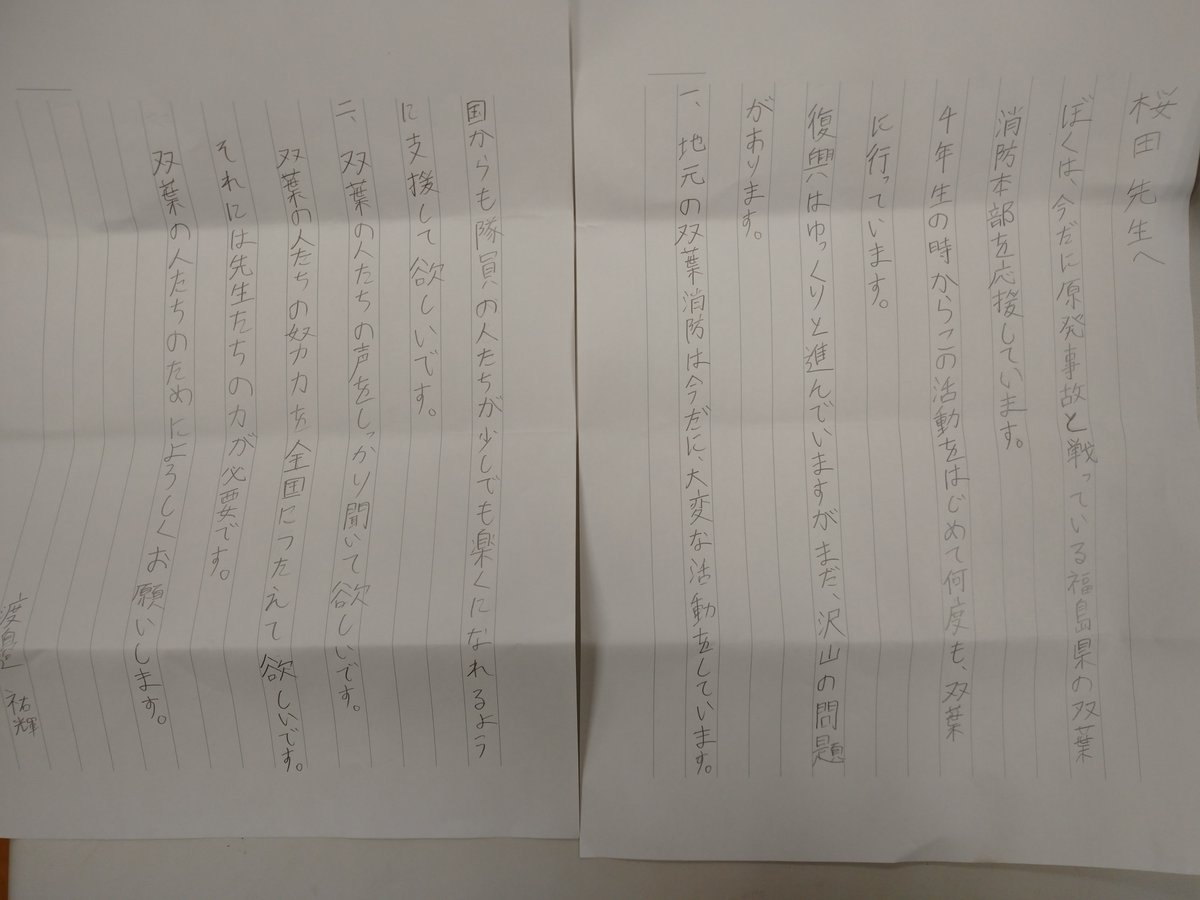 桜田先生へ
ぼくは、今だに原発事故と戦っている福島県の双葉
消防本部を応援しています。
4年生の時からこの活動をはじめて何度も、双葉
に行っています。
復興はゆっくりと進んでいますがまだ、沢山の問題
があります。
一、地元の双葉消防は今だに、大変な活動をしています。
国からも隊員の人たちが少しでも楽くになれるよう
に支援して欲しいです。
二、双葉の人たちの声をしっかり聞いて欲しいです。
双葉の人たちの努力を全国につたえて欲しいです。
それには先生たちの力が必要です。
双葉の人たちのためによろしくお願いします。
渡邉 祐輝